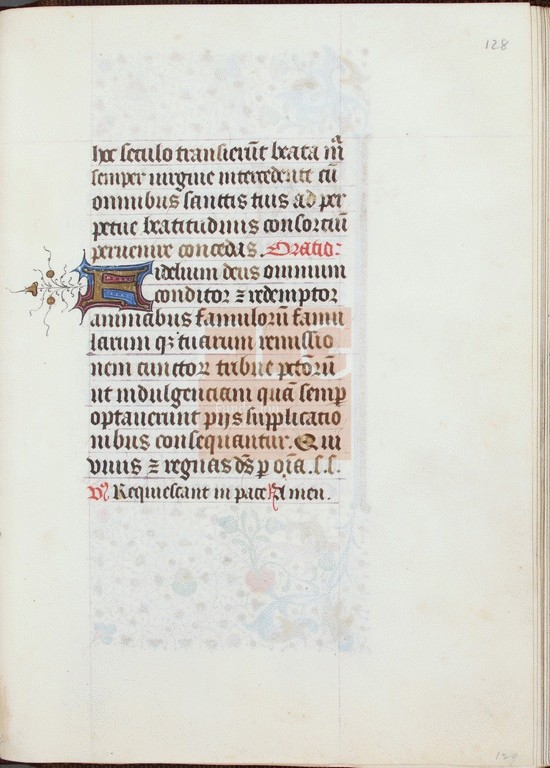 128
hoc seculo transierūt beata mͣ
semper uirgine intercedente cū
omnibus sanctis tuis ad per
petue beatitudinis consorciū
peruenire concedas. Oratio:
Fidelium deus omnium
conditor ⁊ redemptor
animabus famulorū famu
larum qꝫ tuarum remissio
nem cunctoꝝ tribue pctōrū
ut indulgenciam quā semꝑ
optauerunt pijs supplicatio
nibus consequantur. Qui
viuis ⁊ regnas ds̄ p oīa .s.s.
℣ Requiescant in pace ℟ Amen.
129